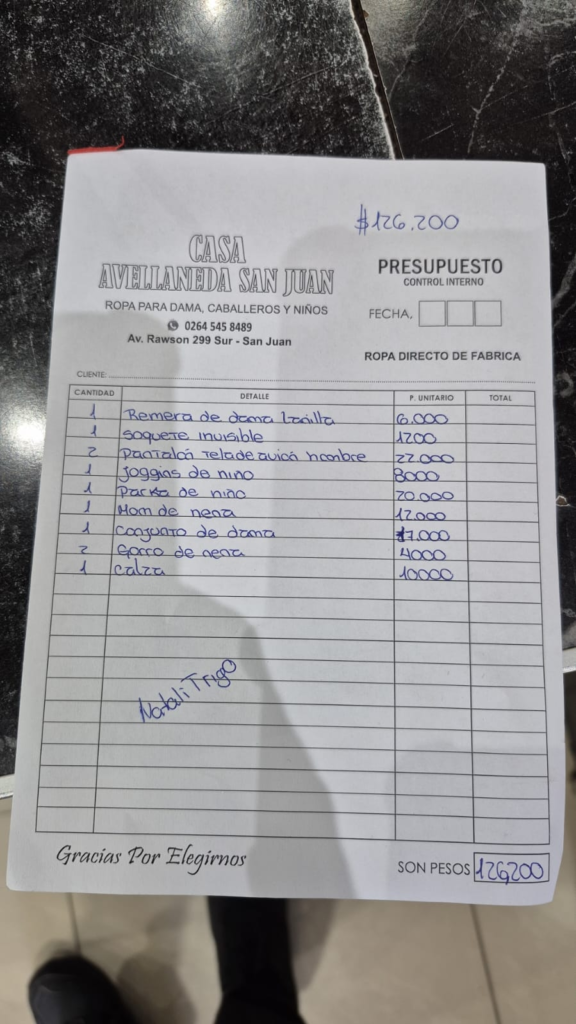 $126.200
CASA
AVELLANEDA SAN JUAN
PRESUPUESTO
CONTROL INTERNO
ROPA PARA DAMA, CABALLEROS Y NIÑOS
0264 545 8489
Av. Rawson 299 Sur - San Juan
FECHA.
ROPA DIRECTO DE FABRICA
CLIENTE:
CANTIDAD DETALLE P. UNITARIO TOTAL
1 Remera de dama lanilla 6.000
1 Soquete invisible 1200
2 Pantalón tela de avión hombre 22.000
1 Joggins de niño 8000
1 Parka de niño 20.000
1 Mom de nena 12.000
1 Conjunto de dama 17.000
2 Gorro de nena 4000
1 Calza 10000
Natali Trigo
Gracias Por Elegirnos
SON PESOS 126200